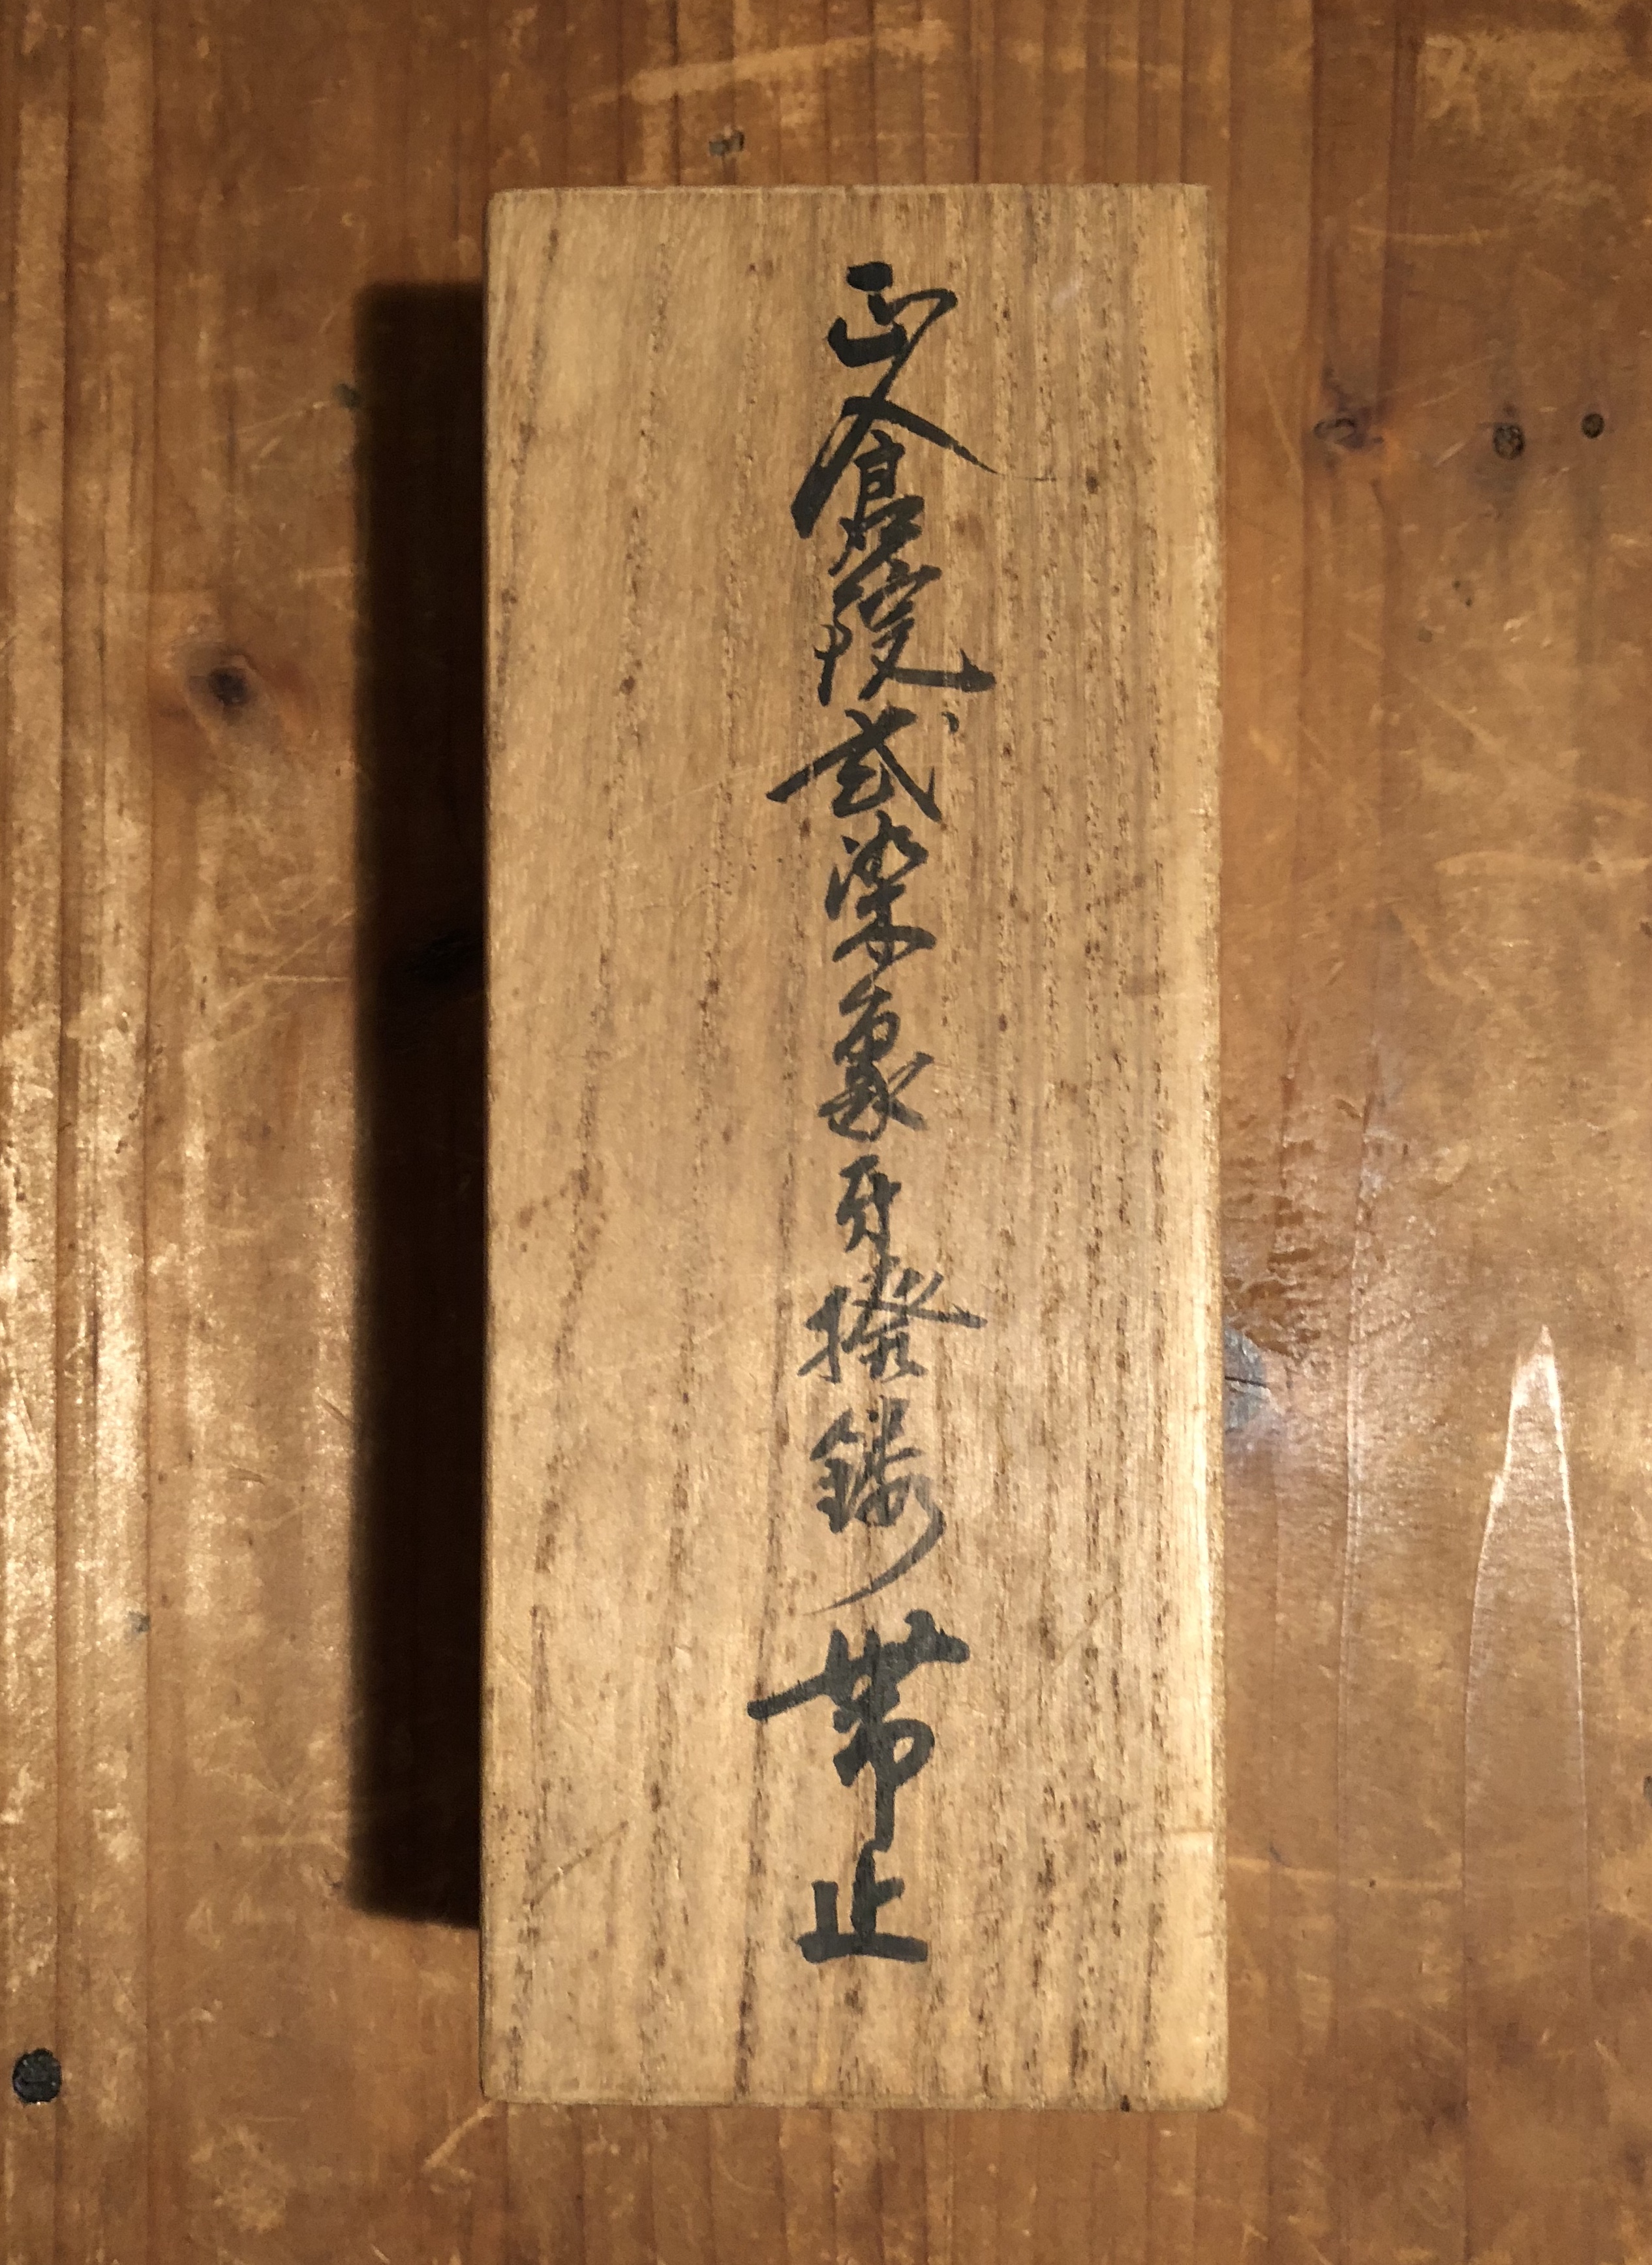 正倉院式染象牙撥鏤帯止